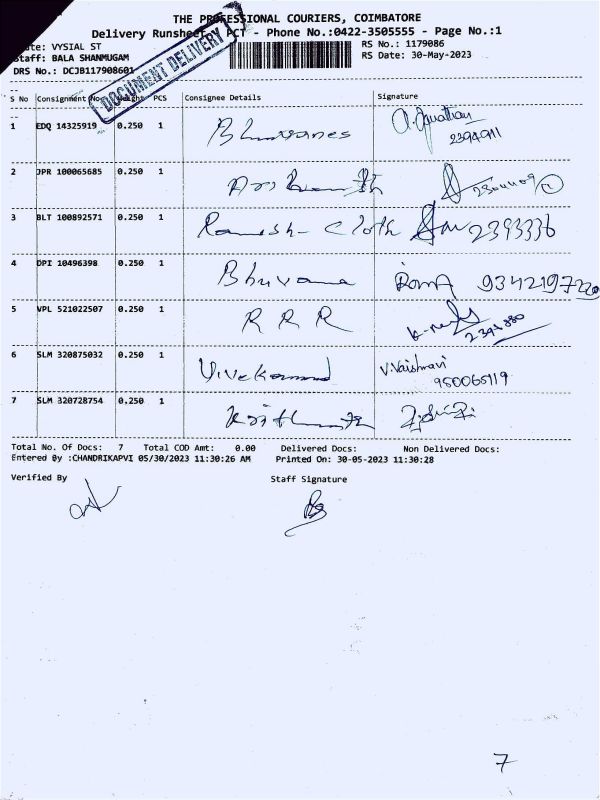 THE PROFESSIONAL COURIERS, COIMBATORE
Delivery Runsheet ACT - Phone No.:0422-3505555 - Page No.:1
VYSIAL ST
RS No.: 1179086
Staff: BALA SHANMUGAM
RS Date: 30-May-2023
DRS No.: DCJB117908601
DOCUMENT DELIVERY
S No Consignment No PCS Consignee Details Signature
1 EDQ 14325919 0.250 1 Bhuvanes
2394911
2 JPR 100065685 0.250 1
3 BLT 100892571 0.250 1 Ramesh- Cloth 2393336
4 DPI 10496398 0.250 1 Bhuvana Roma
5 VPL 521022507 0.250 1 R R R
6 SLM 320875032 0.250 1 Vivekanand V.Vaishnavi
950065119
7 SLM 320728754 0.250 1
Total No. Of Docs: 7 Total COD Amt: 0.00 Delivered Docs: Non Delivered Docs:
Entered By :CHANDRIKAPVI 05/30/2023 11:30:26 AM Printed On: 30-05-2023 11:30:28
Verified By Staff Signature
7